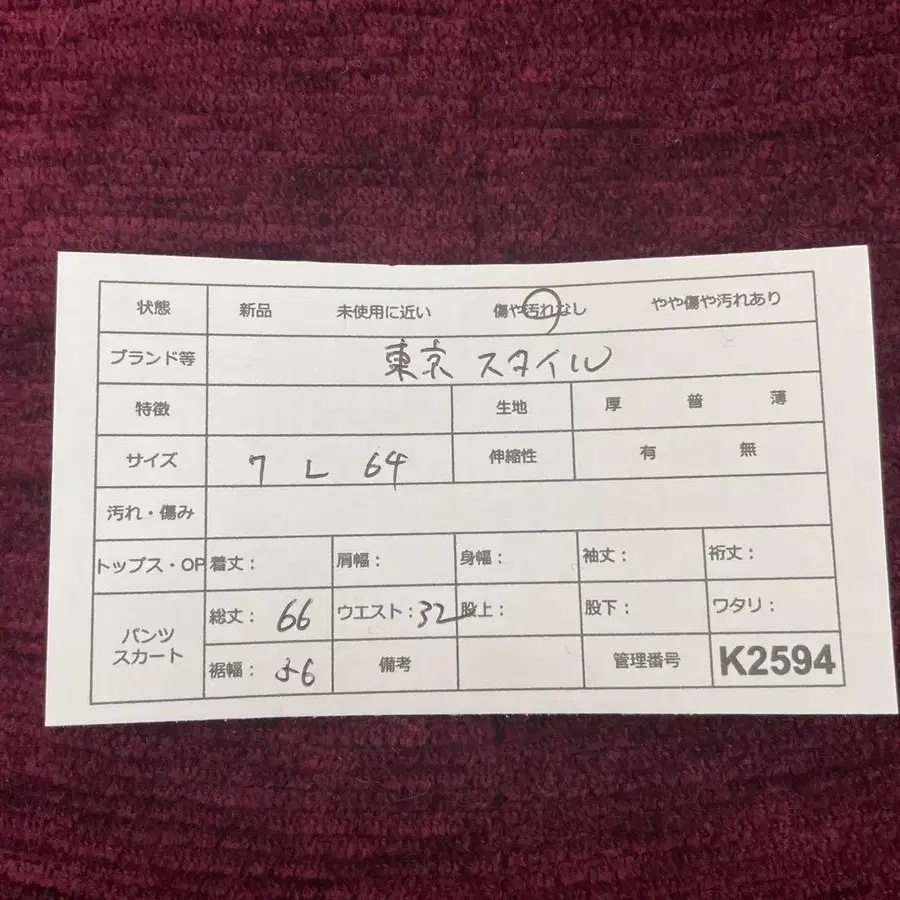 状態 新品 未使用に近い 傷や汚れなし やや傷や汚れあり
ブランド等 東京スタイル
特徴 生地 厚 普 薄
サイズ 7 L 64 伸縮性 有 無
汚れ・傷み
トップス・OP 着丈： 肩幅： 身幅： 袖丈： 裄丈：
パンツ
スカート
総丈： 66 ウエスト： 32 股上： 股下： ワタリ：
裾幅： 56 備考 管理番号 K2594